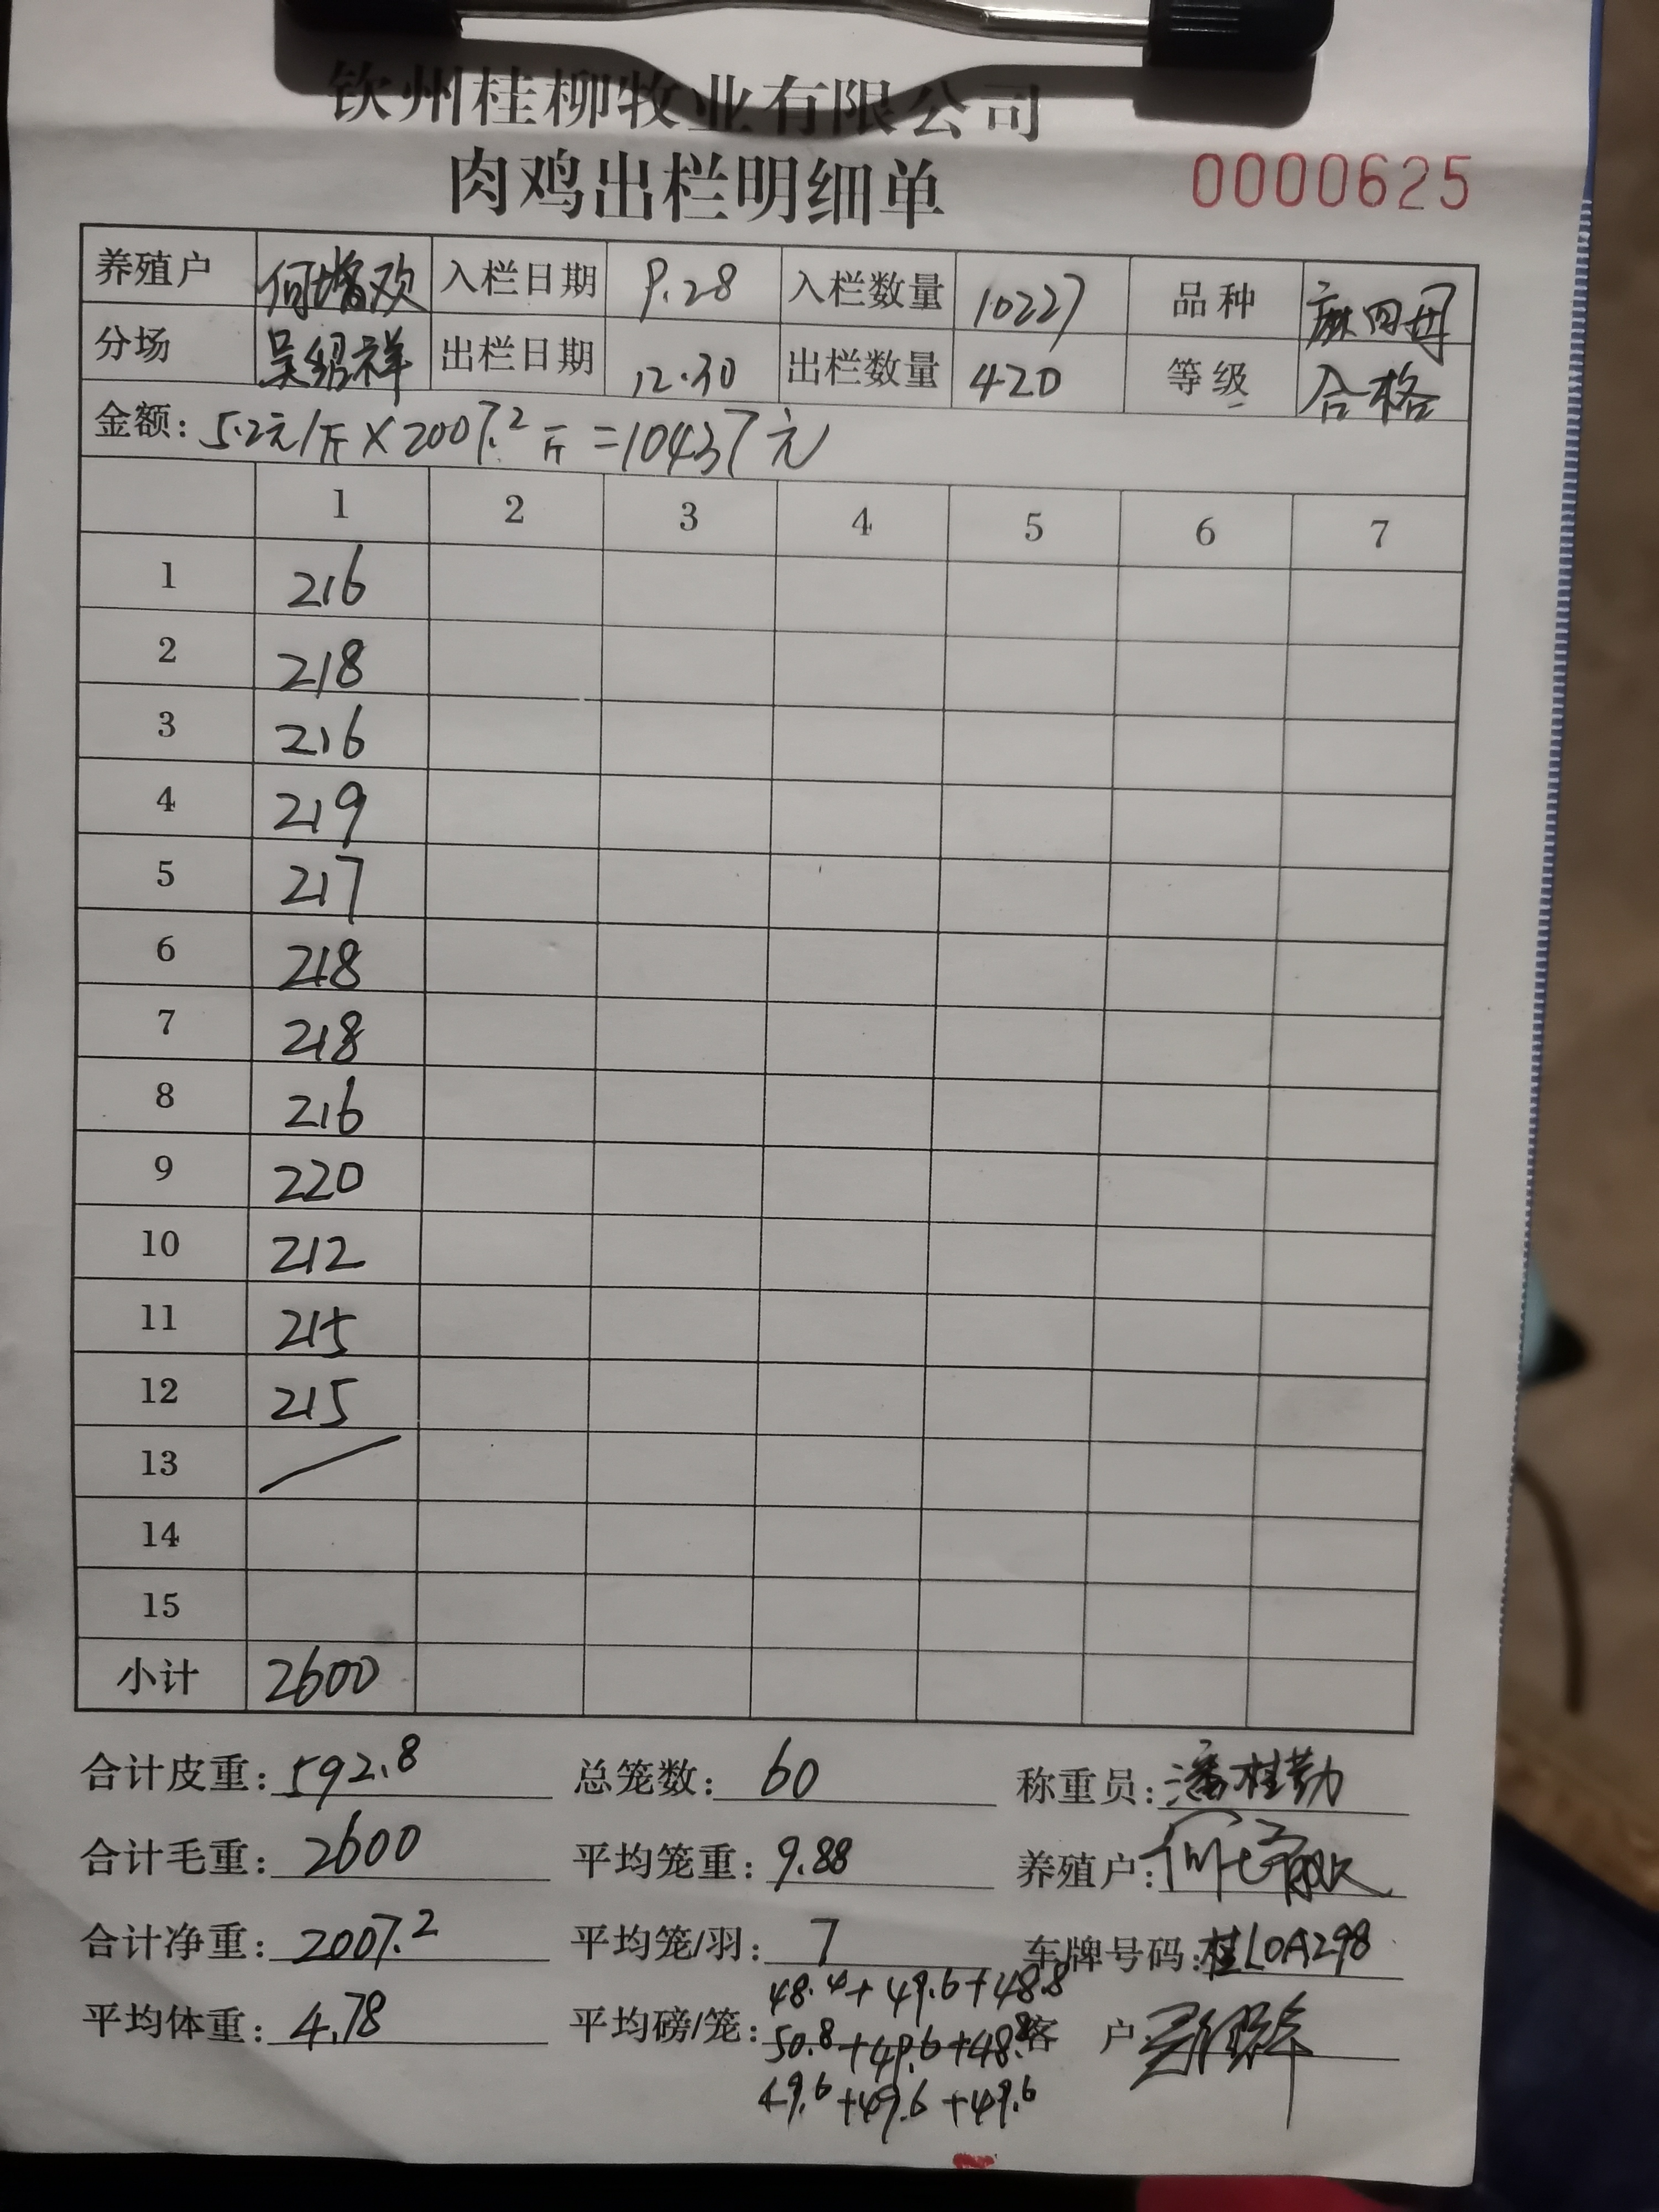 钦州桂柳牧业有限公司
肉鸡出栏明细单 0000625
养殖户 何增欢 入栏日期 9.28 入栏数量 10227 品种 麻四母
分场 吴绍祥 出栏日期 12.30 出栏数量 420 等级 合格
金额: 5.2元/斤×2007.2斤=10437元
1 2 3 4 5 6 7
1 216
2 218
3 216
4 219
5 217
6 218
7 218
8 216
9 220
10 212
11 215
12 215
13
14
15
小计 2600
合计皮重: 592.8 总笼数: 60 称重员: 潘桂勤
合计毛重: 2600 平均笼重: 9.88 养殖户:
合计净重: 2007.2 平均笼/羽: 7 车牌号码: 桂L0A298
48.4+49.6+48.8
平均体重: 4.78 平均磅/笼: 50.8+49.6+48.8 客 户
49.6+49.6+49.6